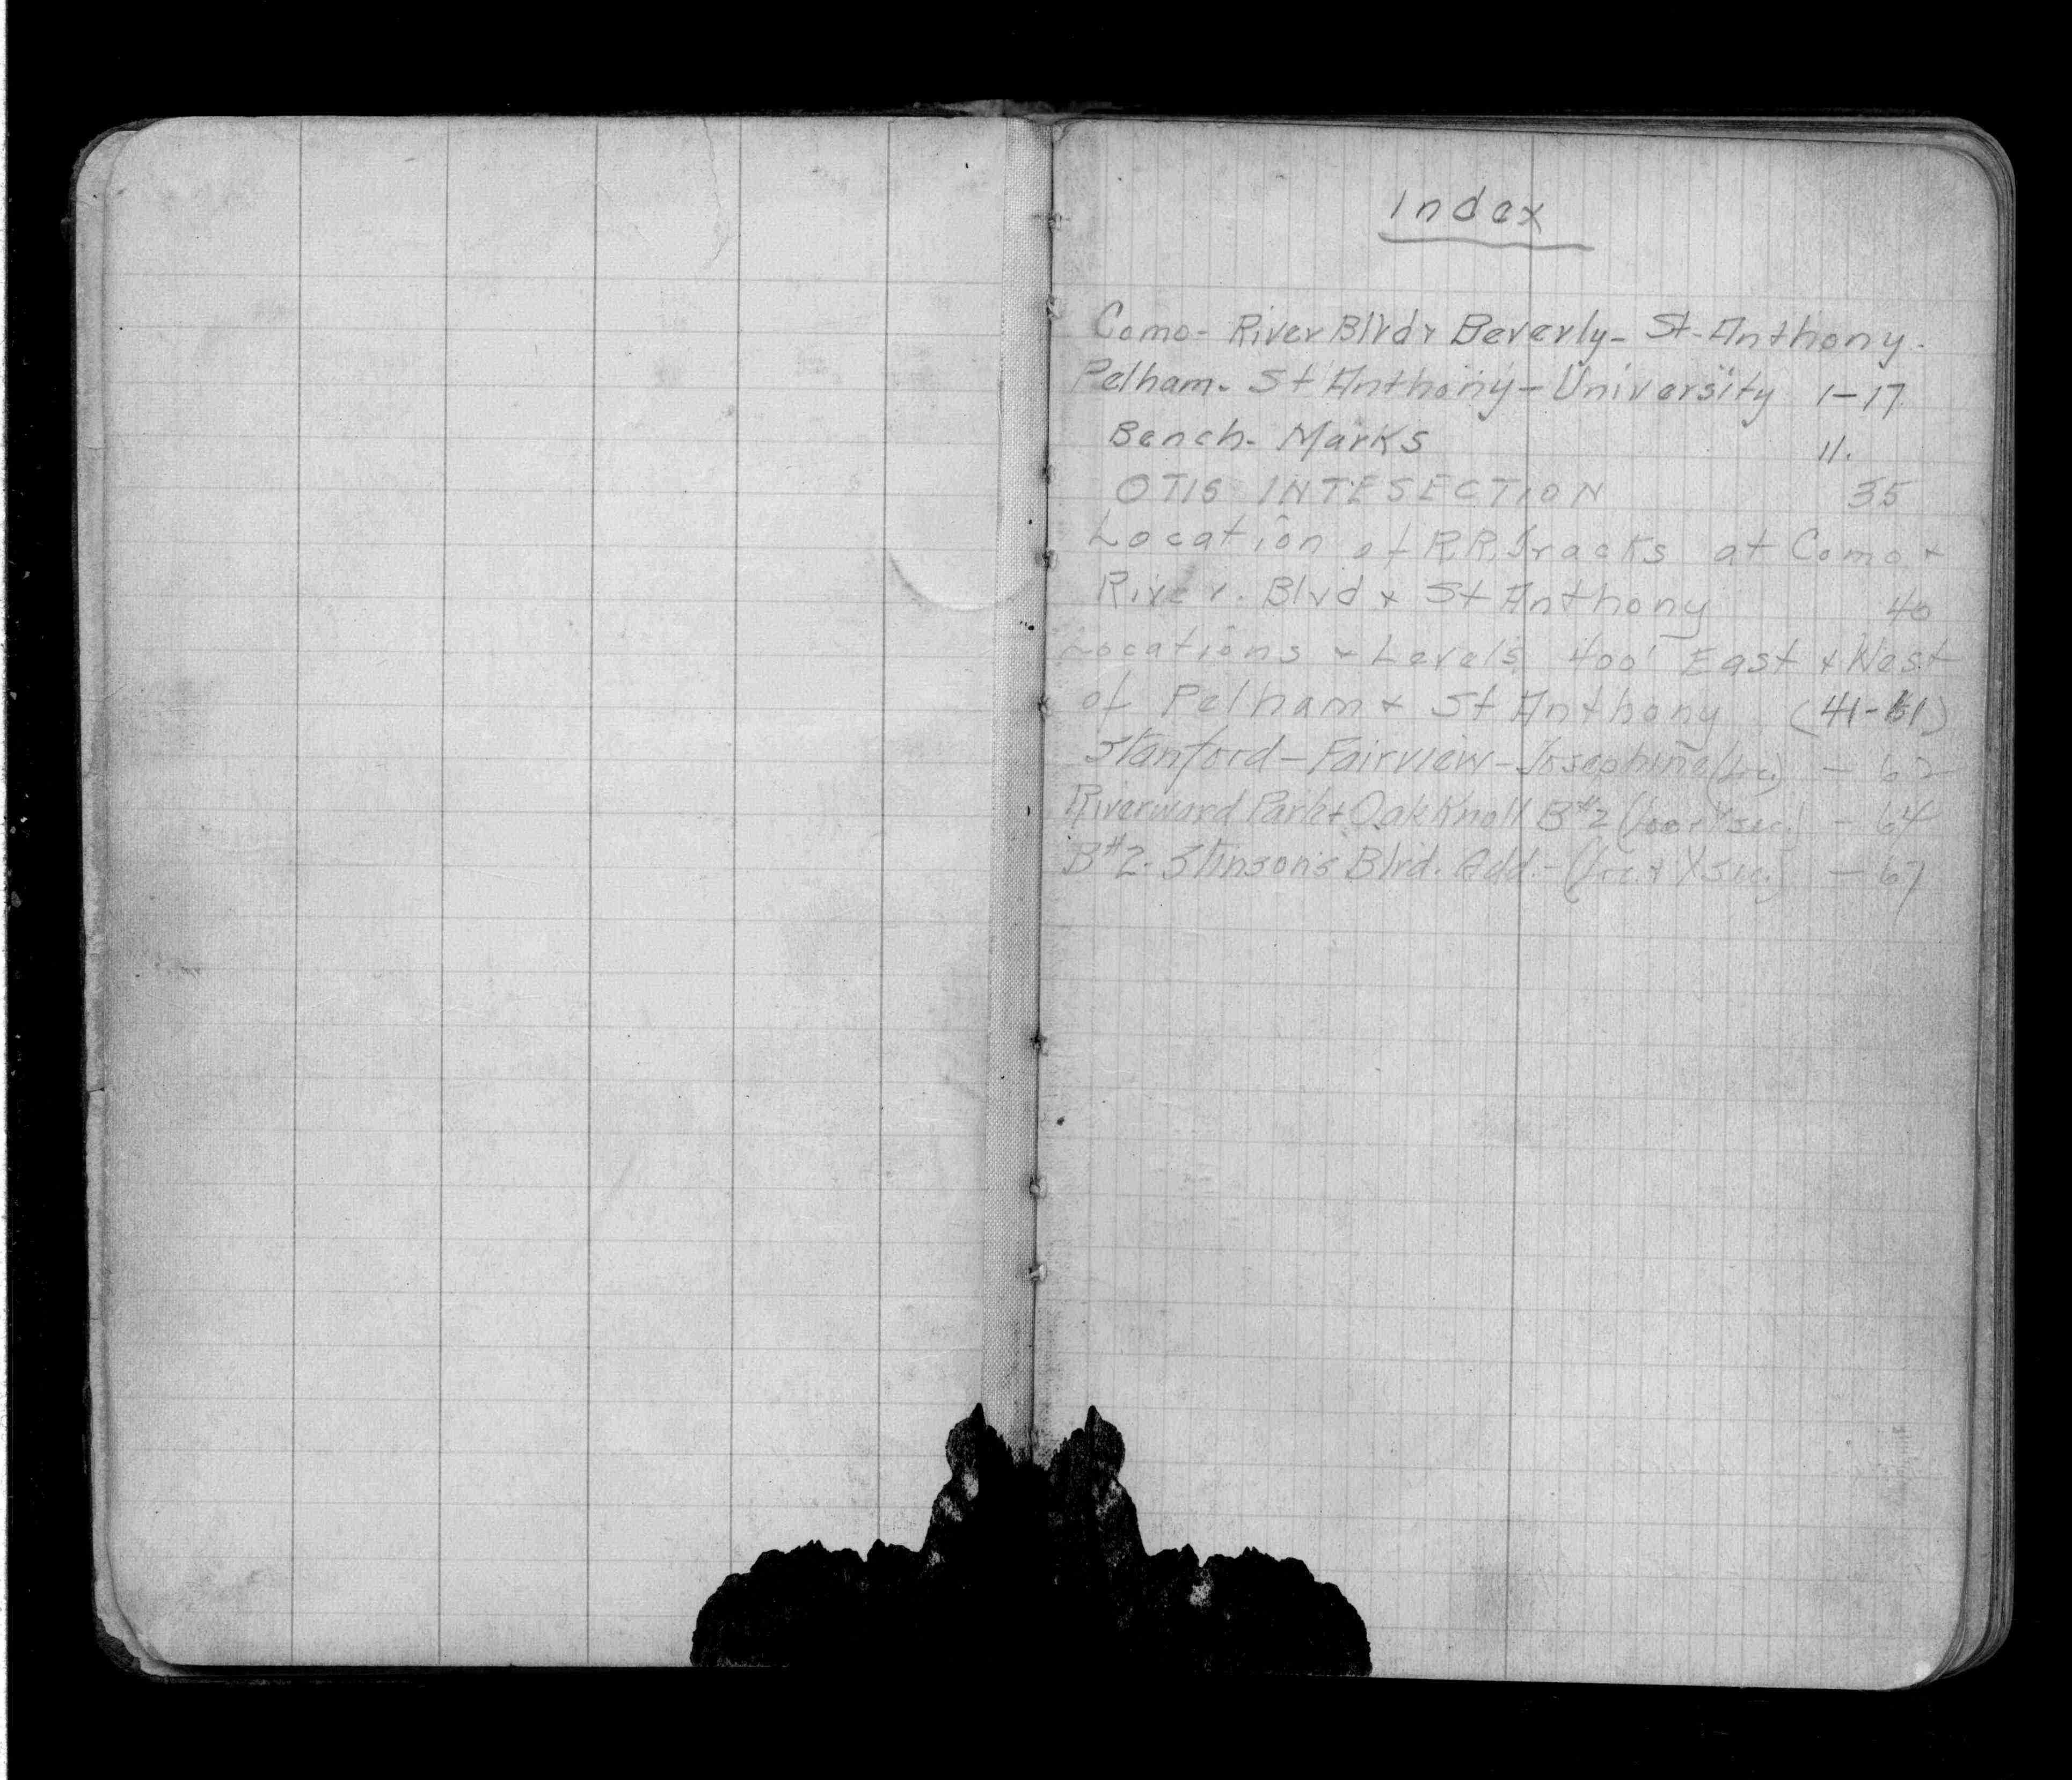 Index
Como- River Blvd & Beverly- St-Anthony-
Pelham- St Anthony- University 1-17
Bench- Marks 11.
OTIS INTESECTION 35
Location of R.R. Tracks at Como &
River. Blvd & St Anthony 40
Locations & Levels 400' East & West
of Pelham & St Anthony (41-61)
Stanford-Fairview-Josephine (loc.) - 62
Riverward Park & Oak Knoll B#2 (loc & X sec.) - 64
B#2- Stinson's Blvd. Add.- (loc. & X sec.) - 67